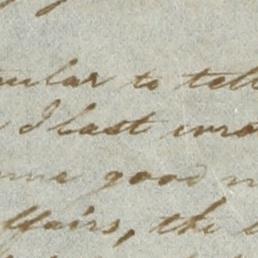 cular to tell
I last wro
me good n
ffairs, the